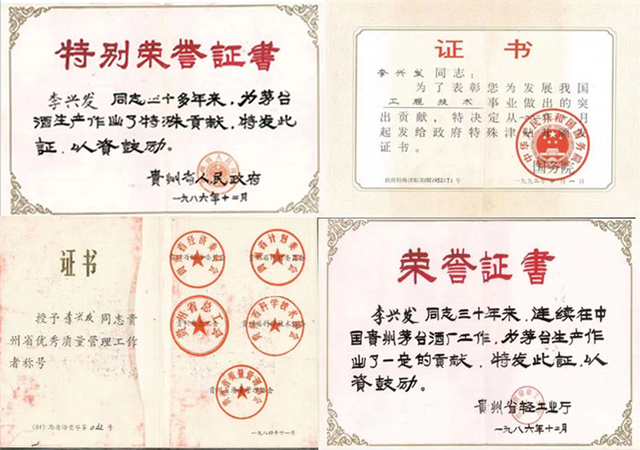 特别荣誉証書
李兴发 同志三十多年来，为茅台
酒生产作出了特殊贡献，特发此
証，以资鼓励。
貴州省人民政府
一九八六年十二月
证书
李兴发同志：
为了表彰您为发展我国
工程技术 事业做出的突
出贡献，特决定从
月
起发给政府特殊津贴
证书。
中华人民共和国国务院
国务院
证书
授予李兴发同志贵
州省优秀质量管理工作
者称号
贵州省经济委员会
贵州省计划委员会
贵州省总工会
贵州省科学技术协会
贵州省质量管理协会
一九八四年十一月
荣誉証書
李兴发 同志三十年来，连续在中
国贵州茅台酒厂工作，为茅台生产作
出了一定的贡献，特发此証，以
资鼓励。
貴州省轻工业厅
一九八六年十二月